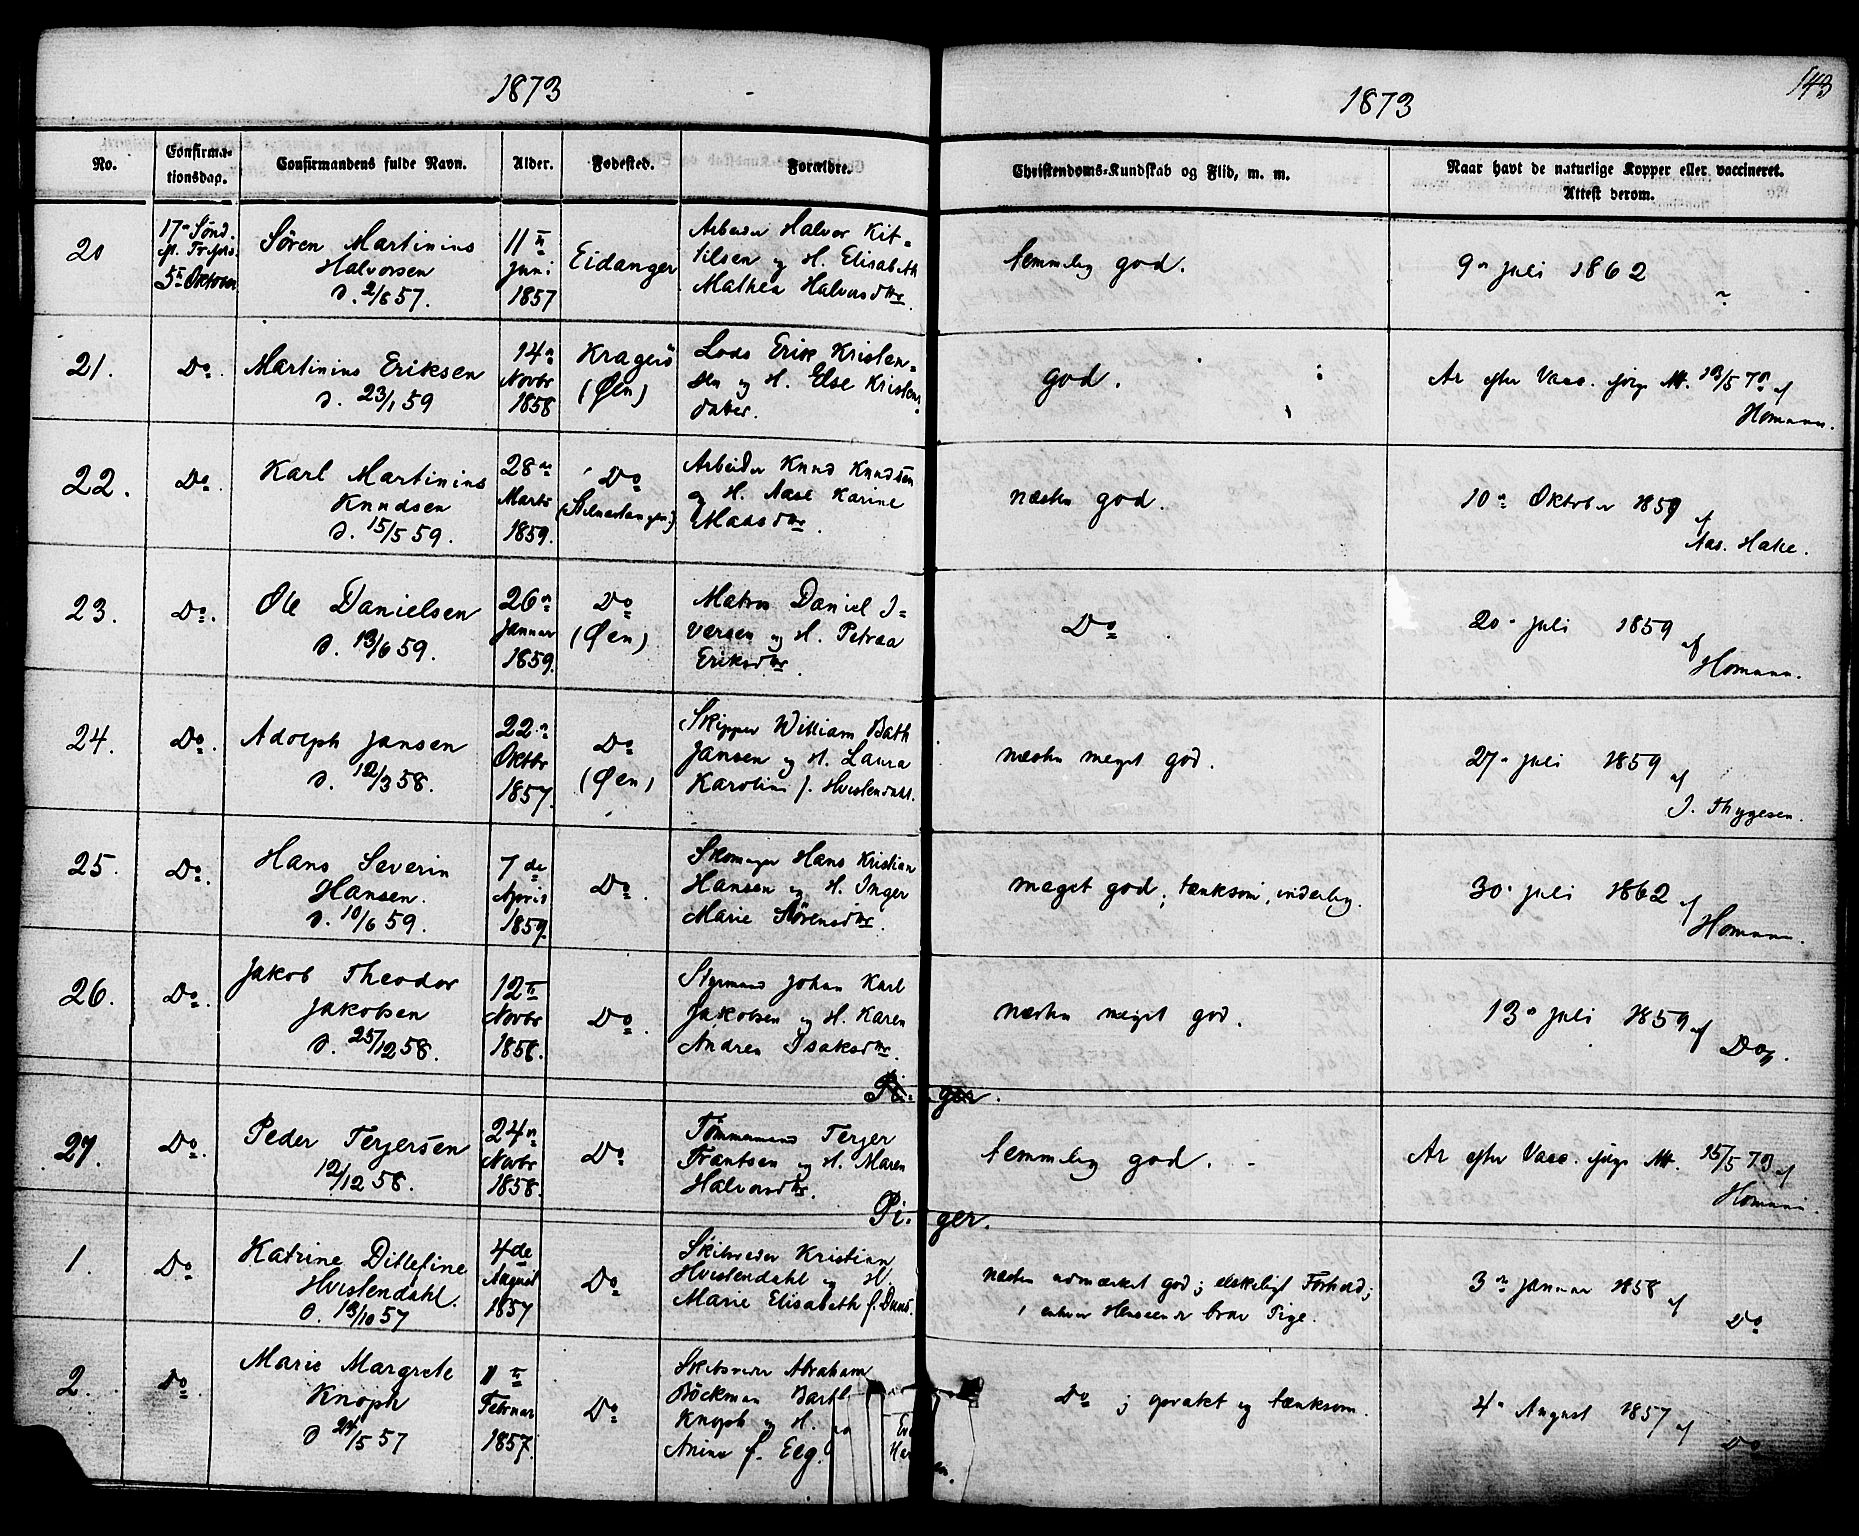 1873
1873
143
No.
Confirma-
tionsdag.
Confirmandens fulde Navn.
Alder.
Fødested.
Forældre.
Christendoms-Kundskab og Flid, m. m.
Naar havt de naturlige Kopper eller vaccineret.
Attest derom.
20
17n Sønd.
5te Oktober
Sören Martinius
Halvorsen
D. 2/8 57.
11te
Juni
1857
Eidanger
Arbeider Halvor Kit-
tilsen og H. Elisabeth
Mathea Halvorsdtr.
temmelig god.
9n Juli 1862
21.
Do.
Martinius Eriksen
D. 23/1 59
14n
Novbr
1858
Kragerö
(Øen)
Lods Erik Kristen-
sen og H. Else Kristens-
datter.
god.
Ar efter Vacc. ifølge Att. 13/5 73 af
Homann.
22.
Do.
Karl Martinius
Knudsen
D. 15/5 59.
28n
Marts
1859.
Do
Arbeider Knud Knudsen
og H. Aase Karine
Madsdtr.
næsten god.
10n Oktober 1859 af
Aas. Hake.
23.
Do.
Ole Danielsen
D. 13/6 59.
26n
Januar
1859.
Do
(Øen)
Matros Daniel I-
versen og H. Petrea
Eriksdtr.
Do
20n Juli 1859 af
Homann.
24.
Do.
Adolph Jansen
D. 12/3 58.
22n
Oktbr
1857.
Do
(Øen)
Skipper William Bath
Jansen og H. Laura
Karoline f. Hvistendahl.
næsten meget god.
27n Juli 1859 af
J. Thygesen.
25.
Do.
Hans Severin
Hansen.
D. 10/6 59.
7de
April
1859.
Do.
Skomager Hans Kristian
Hansen og H. Inger
Marie Sörensdtr.
meget god; tænksom, inderlig.
30n Juli 1862 af
Homann.
26.
Do.
Jakob Theodor
Jakobsen
D. 25/12 58.
12te
Novbr
1858.
Do.
Styrmand Johan Karl
Jakobsen og H. Karen
Andrea Isaksdtr.
næsten meget god.
13n Juli 1859 af
Do.
Pi- ger.
27.
Do.
Peder Terjersen
12/12 58.
24n
Novbr
1858.
Do.
Tömmermand Terjer
Frantsen og H. Maren
Halvorsdtr.
temmelig god.
Ar efter Vacc. ifølge Att. 15/5 73 af
Homann.
Pi- ger.
1.
Do
Katrine Ditlefine
Hvistendahl.
D. 13/10 57
4de
August
1857
Do
Skibsreder Kristian
Hvistendahl og H.
Marie Elisabeth f. Duns.
næsten udmærket god; elskeligt Forhold;
i enhver Henseende brav Pige.
3n Januar 1858 af
Do
2.
Do
Marie Margrete
Knoph
D 24/5 57
1te
Februar
1857.
Do
Skibsreder Abraham
Böckman Barth
Knoph og H.
Anine f. Eeg.
Do; opvakt og tænksom.
4n August 1857 af
Do